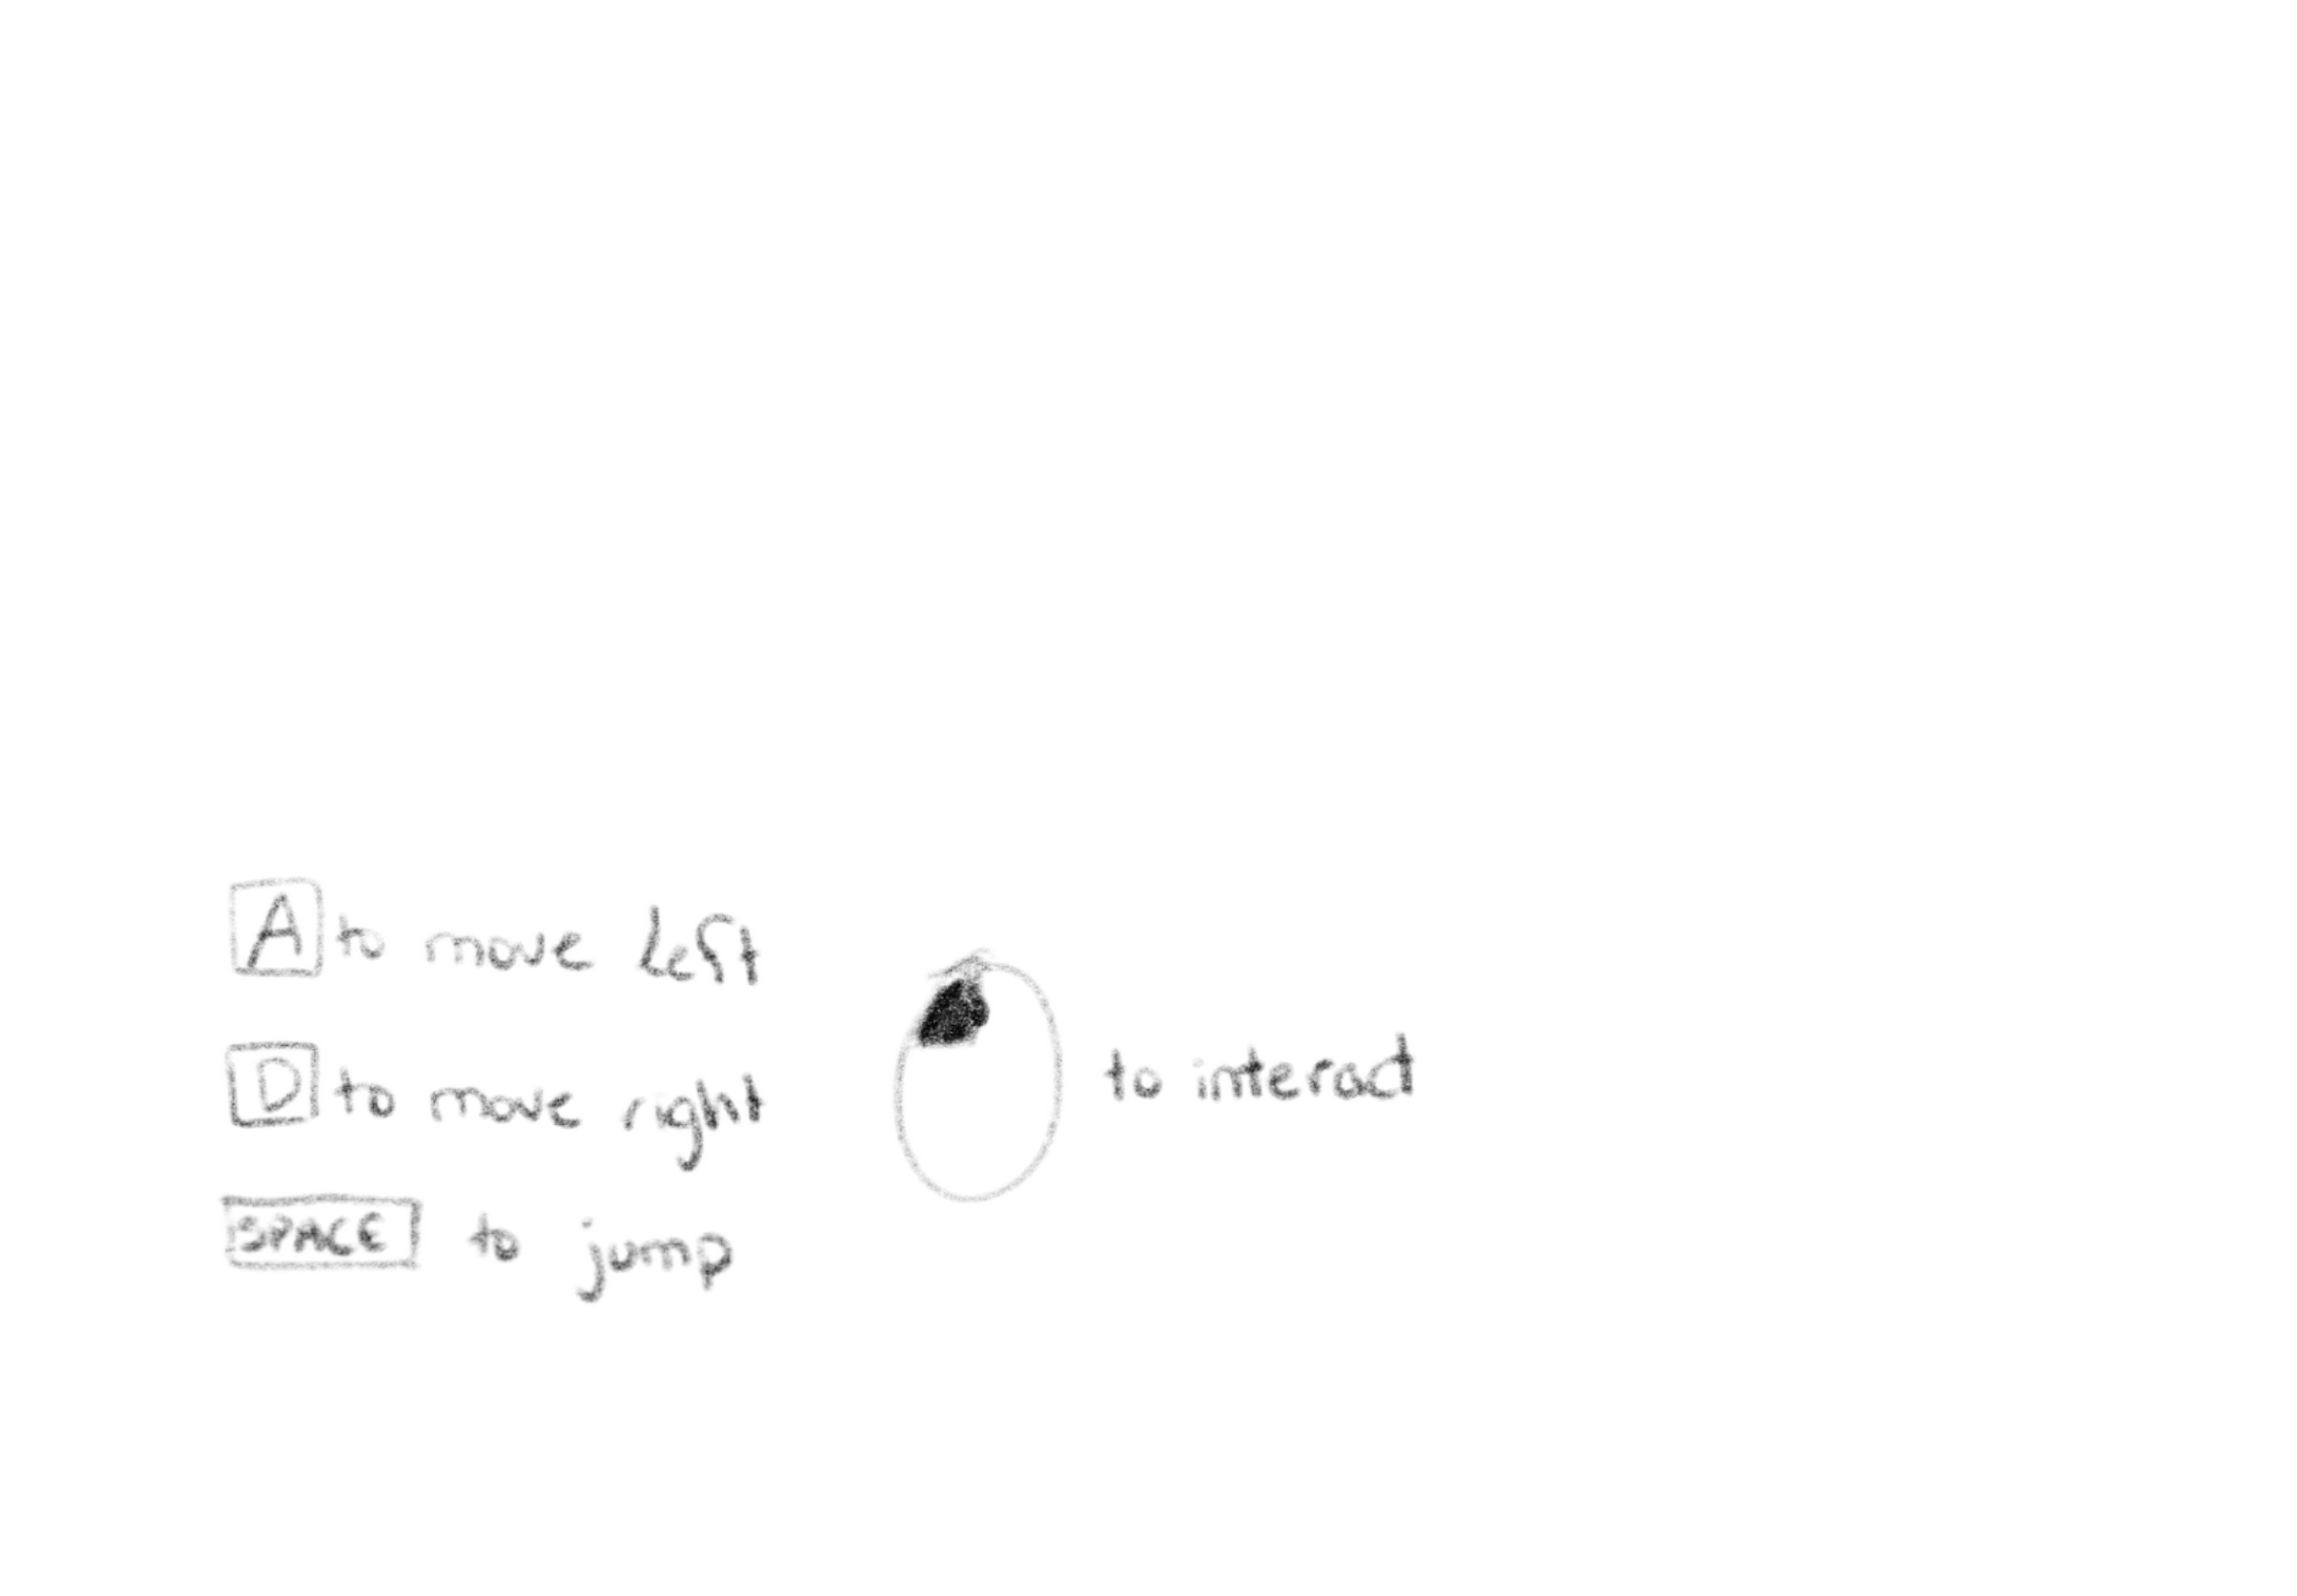 A to move left
D to move right
SPACE to jump
to interact